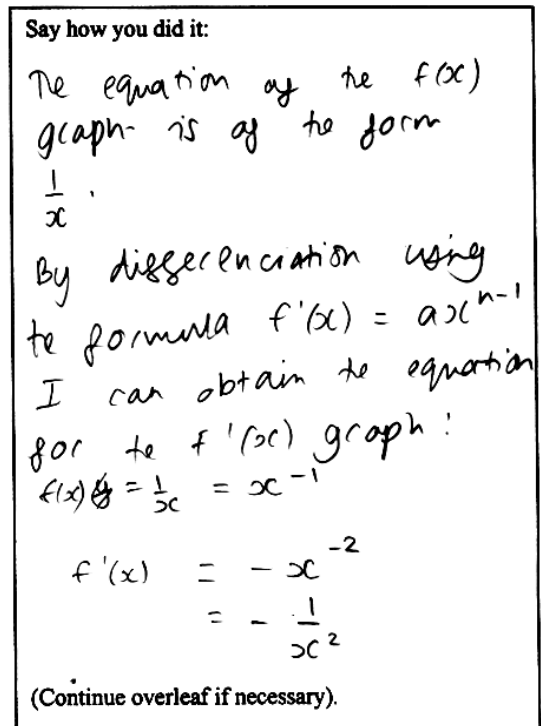 Say how you did it:
The equation of the f(x)
graph is of the form
1/x .
By differenciation using
the formula f'(x) = ax^n-1
I can obtain the equation
for the f'(x) graph :
f(x) = 1/x = x^-1
f'(x) = - x^-2
= - 1/x^2
(Continue overleaf if necessary).